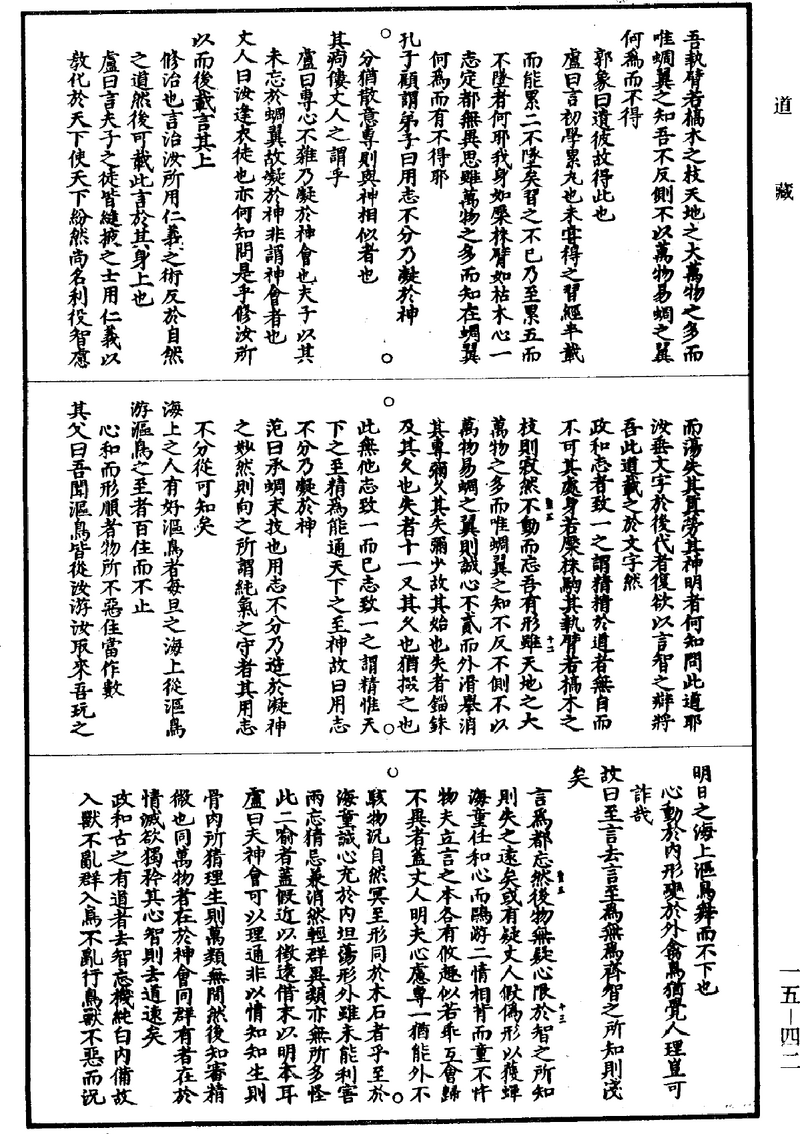 道藏
吾執臂若槁木之枝天地之大萬物之多而
唯蜩翼之知吾不反側不以萬物易蜩之翼
何為而不得
郭象曰遺彼故得此也
盧曰言初學累丸也未嘗得之習經半載
而能累二不墜矣習之不已乃至累五而
不墜者何耶我身如橜株臂如枯木心一
志定都無異思雖萬物之多而知在蜩翼
何為而有不得耶
孔子顧謂弟子曰用志不分乃凝於神
分猶散意專則與神相似者也
其痀僂丈人之謂乎
盧曰專心不雜乃凝於神會也夫子以其
未忘於蜩翼故凝於神非謂神會者也
丈人曰汝逢衣徒也亦何知問是乎修汝所
以而後載言其上
修治也言治汝所用仁義之術反於自然
之道然後可載此言於其身上也
盧曰言夫子之徒皆縫掖之士用仁義以
教化於天下使天下紛然尚名利役智慮
而蕩失其真勞其神明者何知問此道耶
汝垂文字於後代者復欲以言智之辯將
吾此道載之於文字然
政和志者致一之謂精精於道者無自而
不可其處身若橜株駒其執臂若槁木之
枝則寂然不動而忘吾有形雖天地之大
萬物之多而唯蜩翼之知不反不側不以
萬物易蜩之翼則誠心不貳而外滑舉消
其專彌久其失彌少故其始也失者錙銖
及其久也失者十一又其久也猶掇之也
此無他志致一而已志致一之謂精惟天
下之至精為能通天下之至神故曰用志
不分乃凝於神
范曰承蜩末技也用志不分乃造於凝神
之妙然則向之所謂純氣之守者其用志
不分從可知矣
海上之人有好漚鳥者每旦之海上從漚鳥
游漚鳥之至者百住而不止
心和而形順者物所不惡住當作數
其父曰吾聞漚鳥皆從汝游汝取來吾玩之
明日之海上漚鳥舞而不下也
心動於內形變於外禽鳥猶覺人理豈可
詐哉
故曰至言去言至為無為齊智之所知則淺
矣
言為都忘然後物無疑心限於智之所知
則失之遠矣或有疑丈人假偽形以獲蟬
海童任和心而鷗游二情相背而童不忤
物夫立言之本各有攸趣似若乖互會歸
不異者蓋丈人明夫心慮專一猶能外不
駭物況自然冥至形同於木石者乎至於
海童誠心充於內坦蕩形外雖未能利害
兩忘猜忌兼消然輕群異類亦無所多怪
此二喻者蓋假近以徵遠借末以明本耳
盧曰夫神會可以理通非以情知知生則
骨肉所猜理生則萬類無間然後知審精
微也同萬物者在於神會同群有者在於
情滅欲獨矜其心智則去道遠矣
政和古之有道者去智忘機純白內備故
入獸不亂群入鳥不亂行鳥獸不惡而況
一五—四二